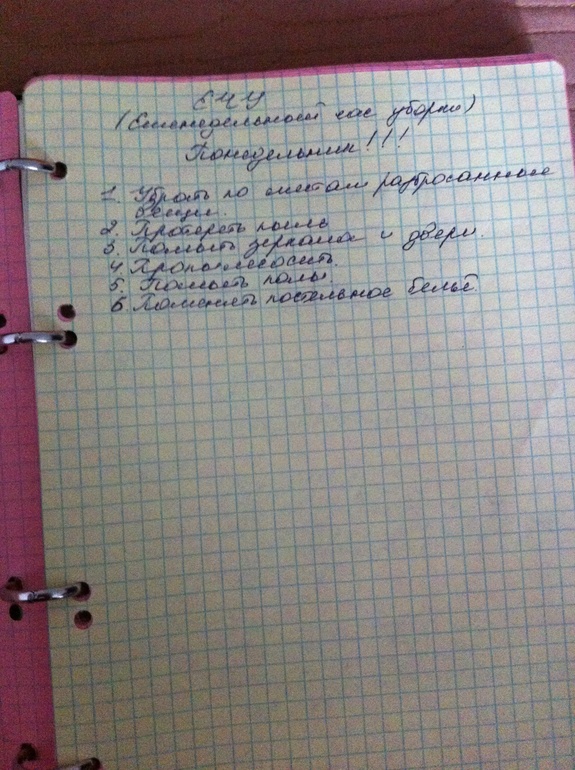 ЕЧУ
(Еженедельный час уборки)
Понедельник!!!
1. Убрать по местам разбросанные
вещи.
2. Протереть пыль
3. Помыть зеркала и двери.
4. Пропылесосить.
5. Помыть полы
6. Поменять постельное бельё.